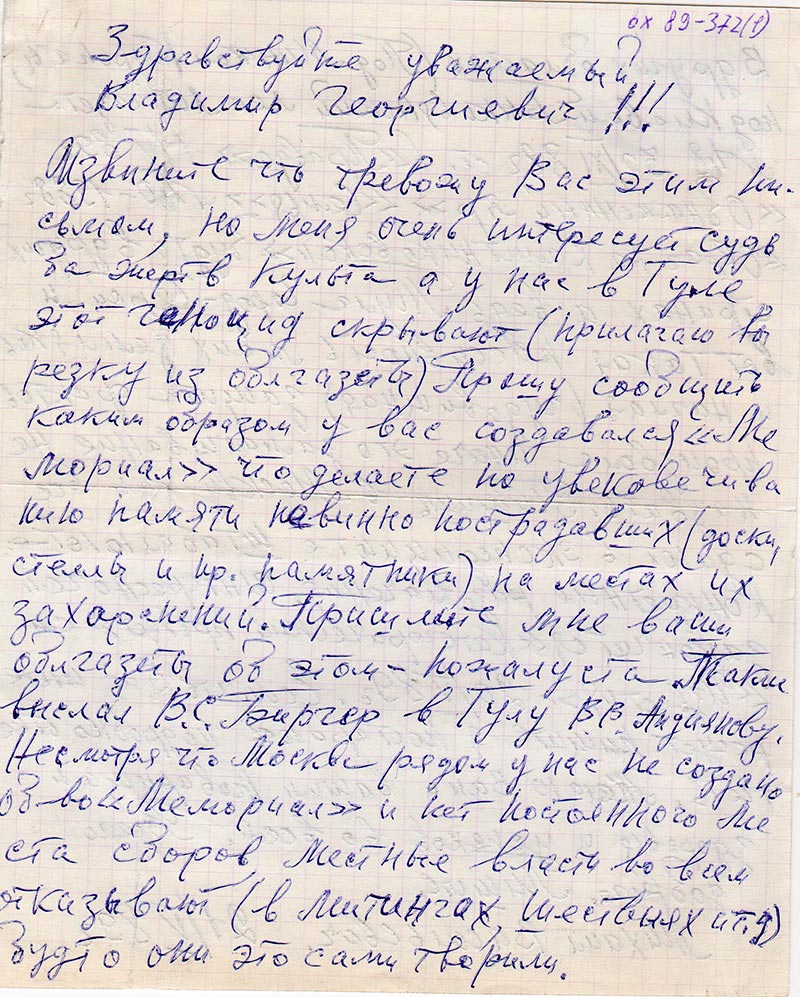 вх 89-372(1)
Здравствуйте уважаемый
Владимир Георгиевич!!!
Извините что тревожу Вас этим пи-
сьмом, но меня очень интересует судь
ба жертв культа а у нас в Туле
этот геноцид скрывают (прилагаю вы
резку из облгазеты) Прошу сообщить
каким образом у вас создавался «Ме
мориал» что делаете по увековечива
нию памяти невинно пострадавших (доски,
стеллы и пр. памятники) на местах их
захоронений. Пришлите мне ваши
облгазеты об этом - пожалуста. Такие
выслал В.С. Биргер в Тулу В.В. Андиянову.
Несмотря что Москва рядом у нас не создано
об-во «Мемориал» и нет постоянного ме
ста сборов, местные власти во всем
отказывают (в митингах, шествиях и т.д)
будто они это сами творили.